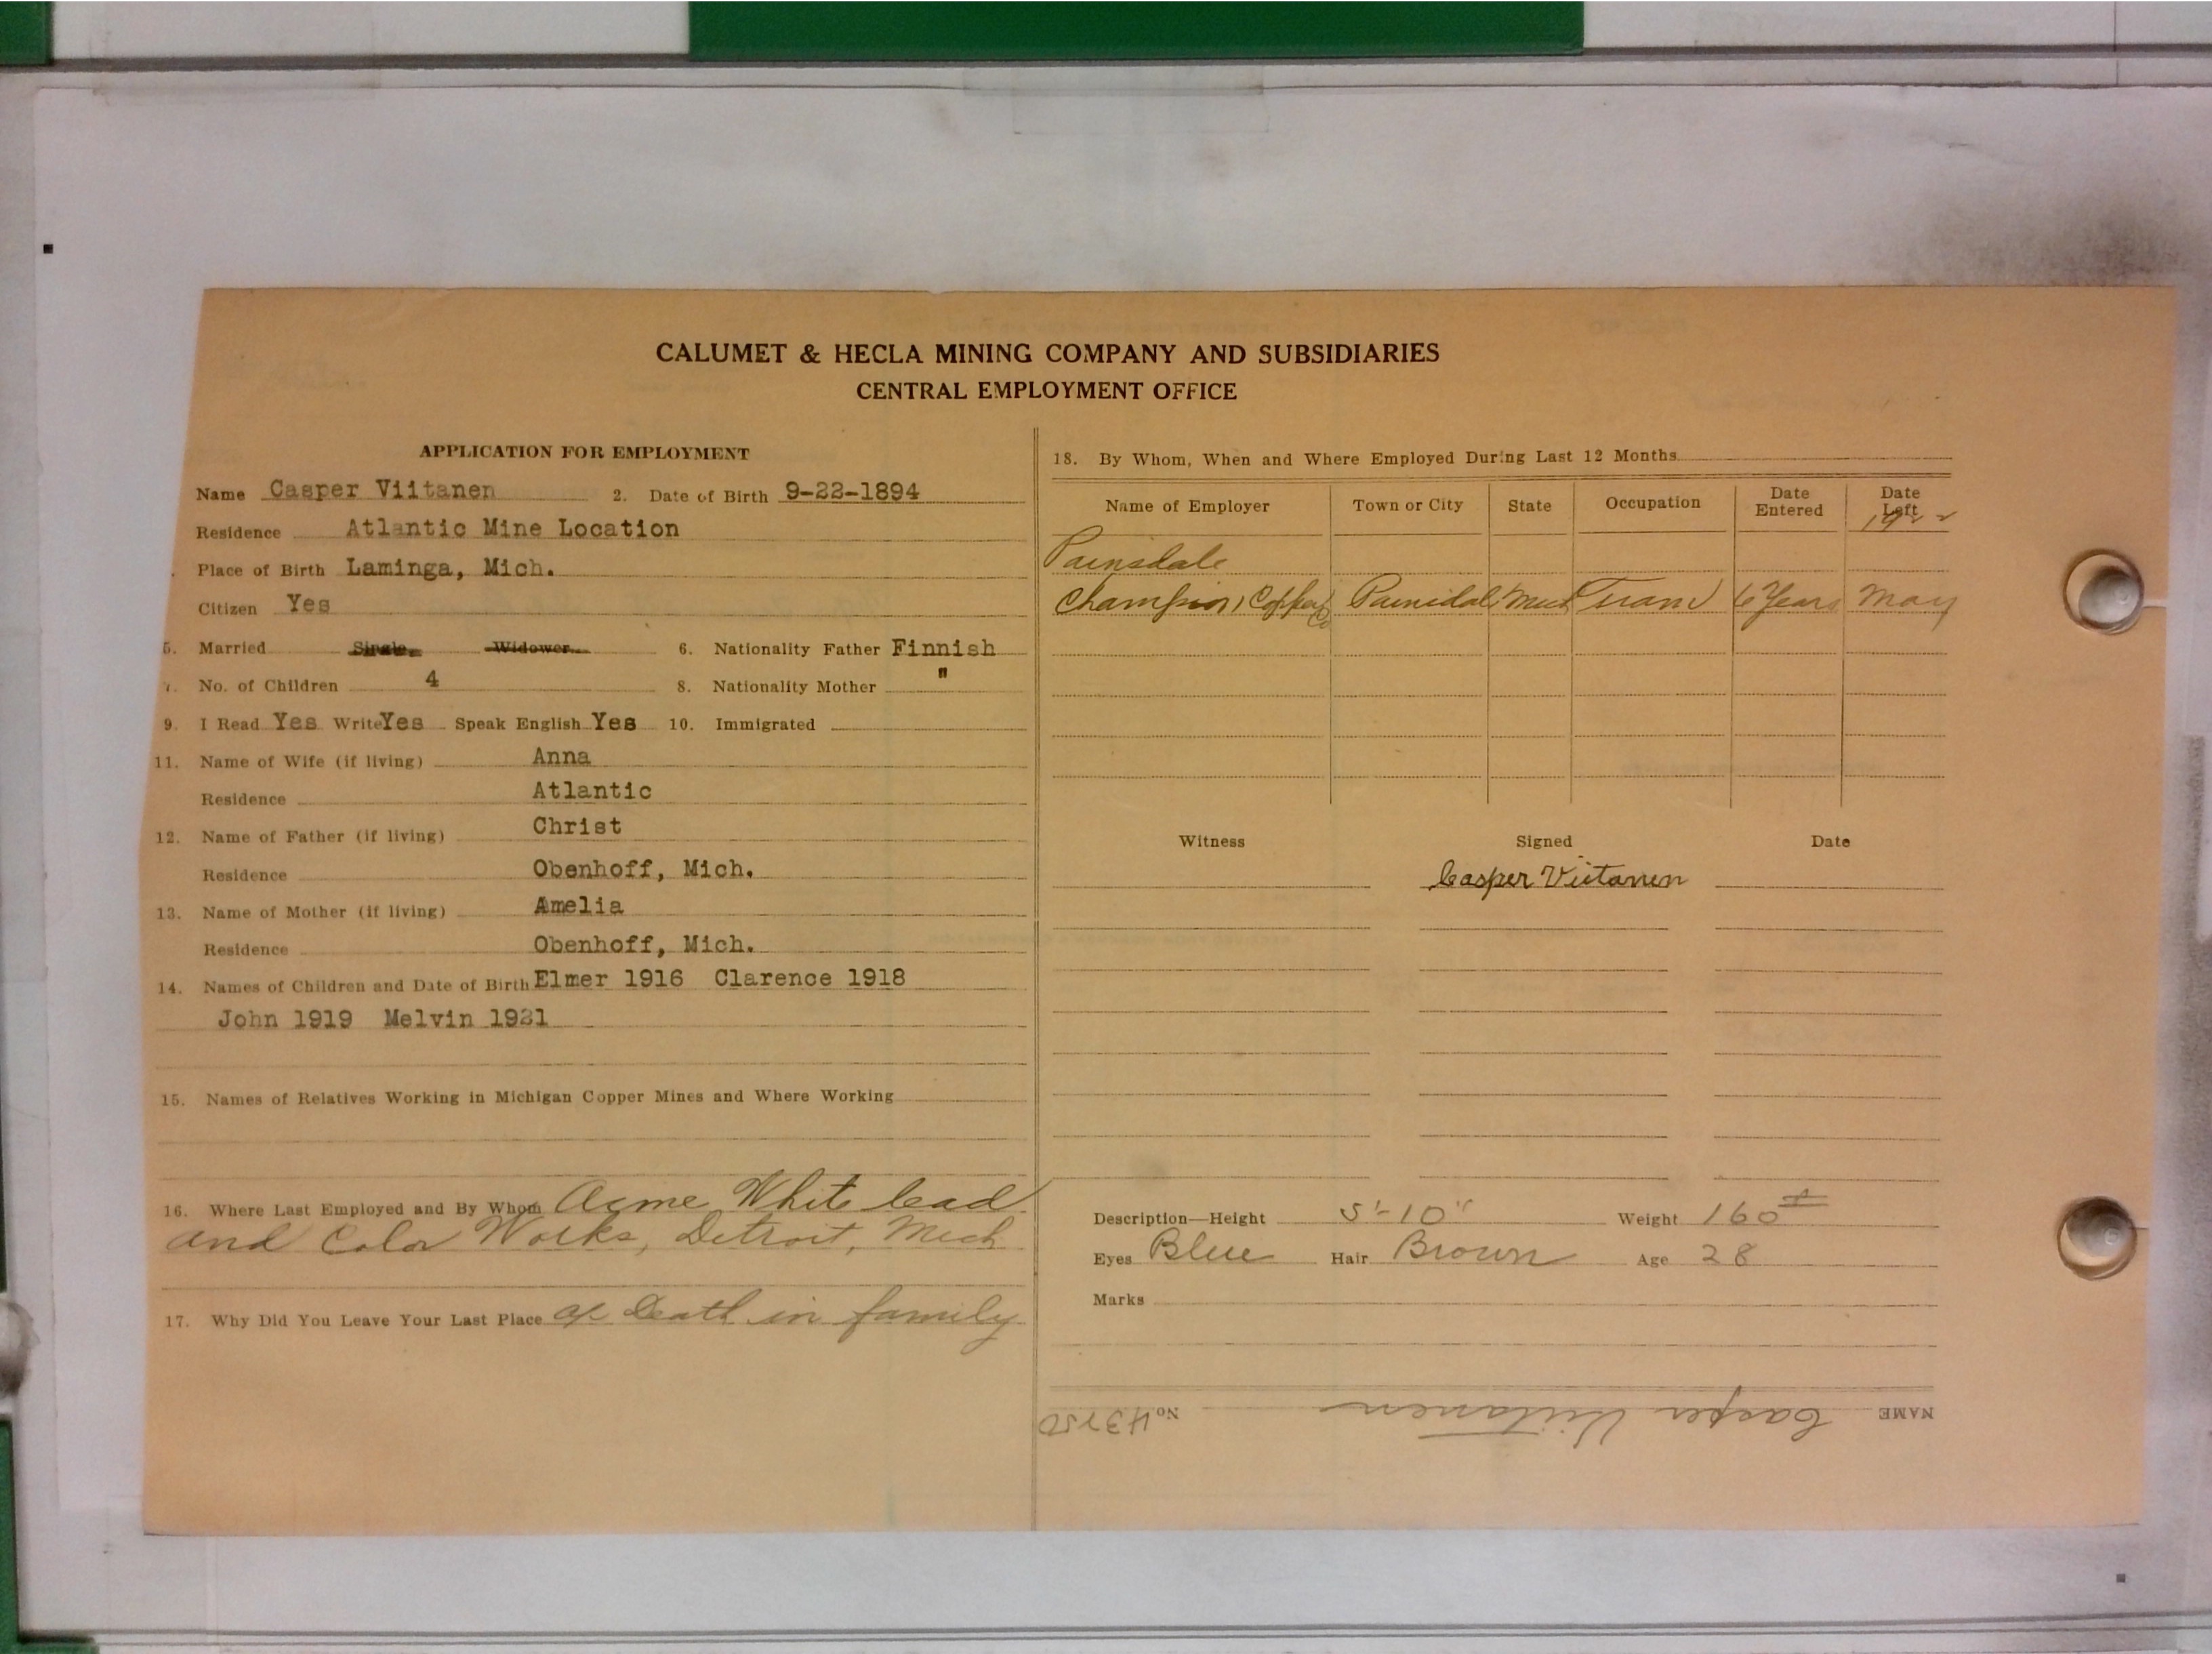 CALUMET & HECLA MINING COMPANY AND SUBSIDIARIES
CENTRAL EMPLOYMENT OFFICE
APPLICATION FOR EMPLOYMENT
Name Casper Viitanen 2. Date of Birth 9-22-1894
Residence Atlantic Mine Location
Place of Birth Laminga, Mich.
Citizen Yes
5. Married Single Widower 6. Nationality Father Finnish
7. No. of Children 4 8. Nationality Mother "
9. I Read Yes Write Yes Speak English Yes 10. Immigrated
11. Name of Wife (if living) Anna
Residence Atlantic
12. Name of Father (if living) Christ
Residence Obenhoff, Mich.
13. Name of Mother (if living) Amelia
Residence Obenhoff, Mich.
14. Names of Children and Date of Birth Elmer 1916 Clarence 1918
John 1919 Melvin 1921
15. Names of Relatives Working in Michigan Copper Mines and Where Working
16. Where Last Employed and By Whom Acme White lead
and Color Works, Detroit, Mich
17. Why Did You Leave Your Last Place Death in family
18. By Whom, When and Where Employed During Last 12 Months
Name of Employer Town or City State Occupation Date Entered Date Left
1922
Painsdale
Champion Copper Co Painsdale Mich Tram 6 Years May
Witness Signed Date
Casper Viitanen
Description—Height 5'-10" Weight 160#
Eyes Blue Hair Brown Age 28
Marks
NAME Casper Viitanen No.